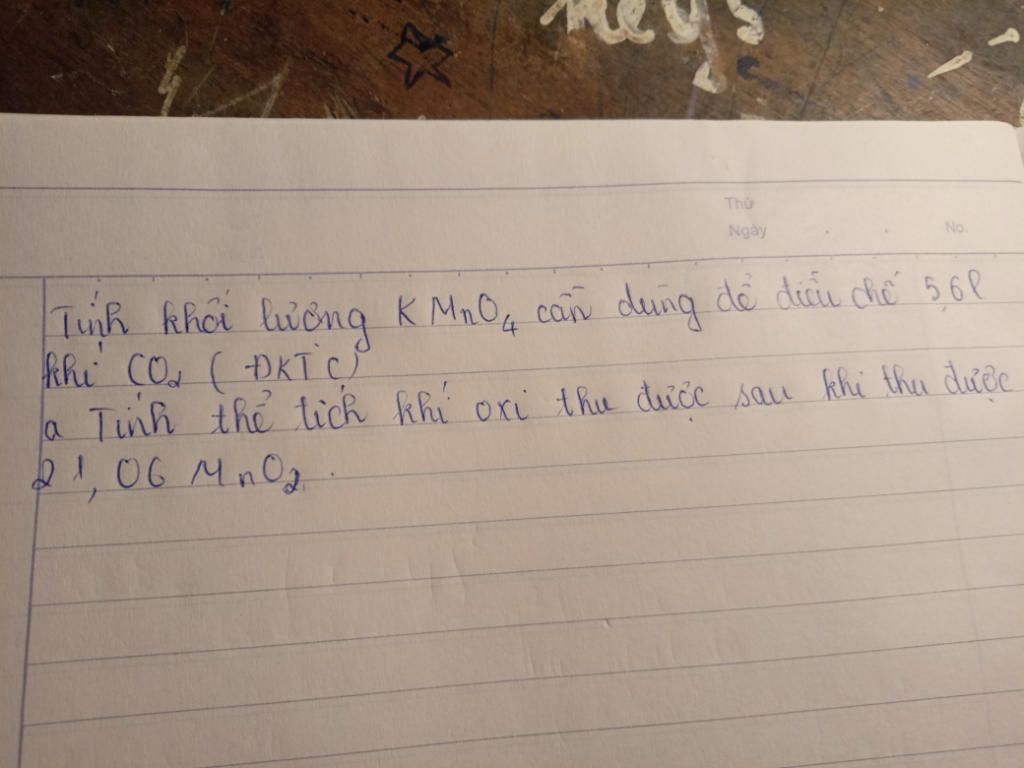 Thứ
Ngày
No.
Tính khối lượng KMnO4 cần dùng để điều chế 5,6l
khí CO2 (ĐKTC)
a Tính thể tích khí oxi thu được sau khi thu được
21,06 MnO2.